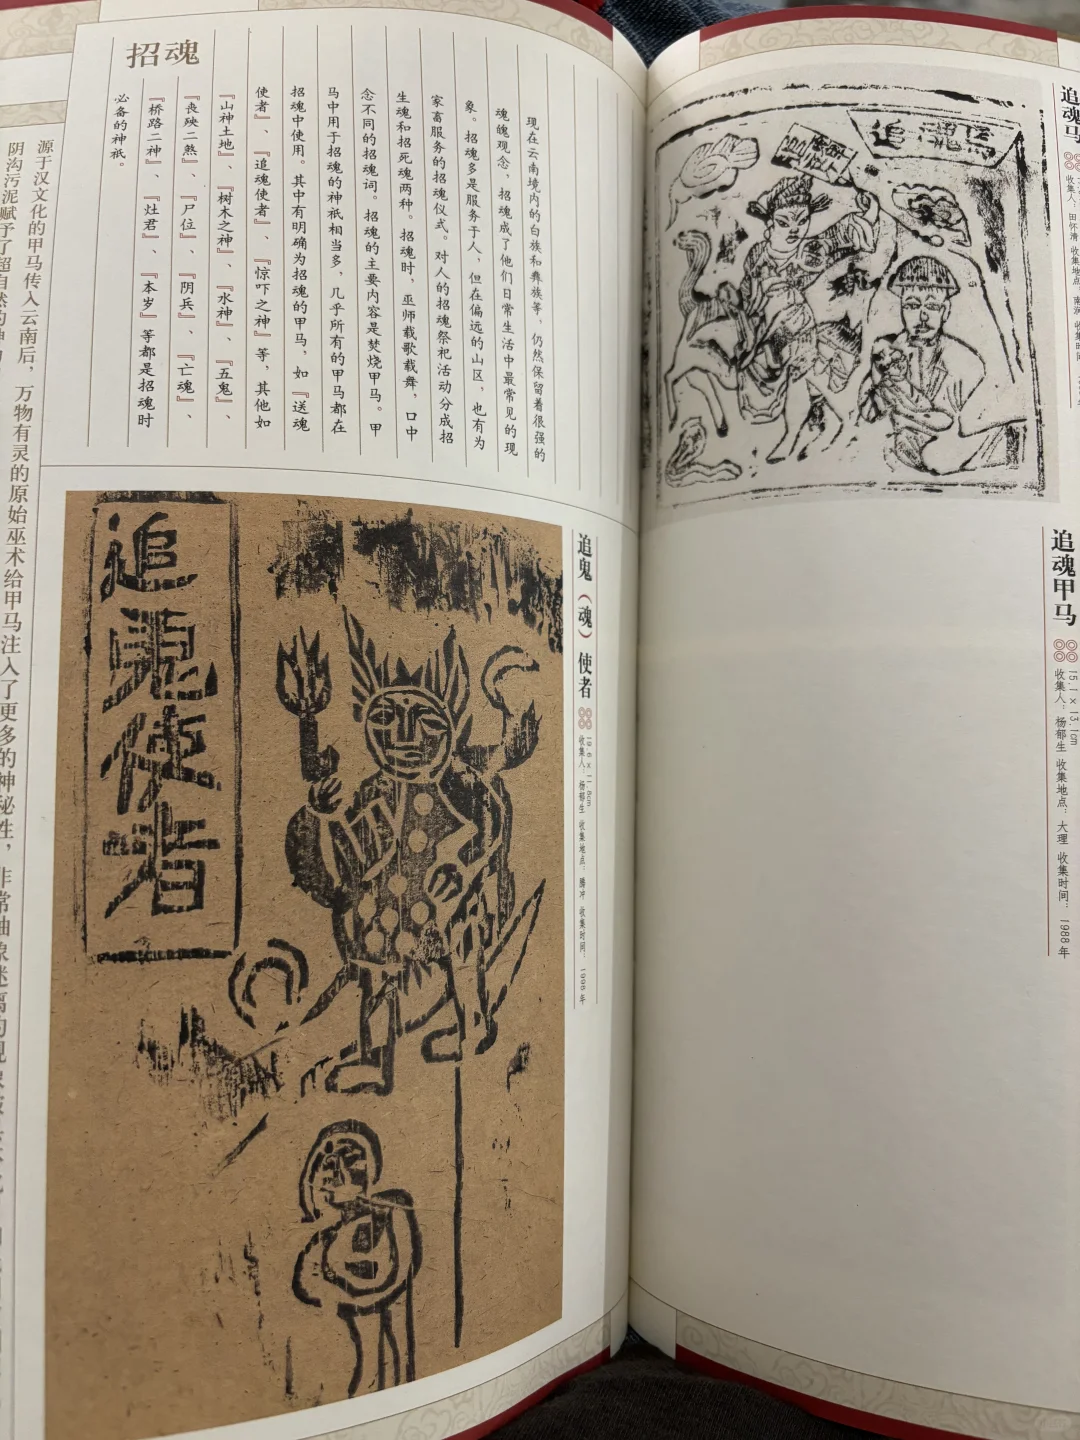 招魂
现在云南境内的白族和彝族等，仍然保留着很强的
魂魄观念，招魂成了他们日常生活中最常见的现
象。招魂多是服务于人，但在偏远的山区，也有为
家畜服务的招魂仪式。对人的招魂祭祀活动分成招
生魂和招死魂两种。招魂时，巫师载歌载舞，口中
念不同的招魂词。招魂的主要内容是焚烧甲马。甲
马中用于招魂的神祇相当多，几乎所有的甲马都在
招魂中使用。其中有明确为招魂的甲马，如『送魂
使者』、『追魂使者』、『惊吓之神』等，其他如
『山神土地』、『树木之神』、『水神』、『五鬼』、
『丧殃二煞』、『尸位』、『阴兵』、『亡魂』、
『桥路二神』、『灶君』、『本岁』等都是招魂时
必备的神祇。
源于汉文化的甲马传入云南后，万物有灵的原始巫术给甲马注入了更多的神秘性，非常抽象迷离的
阴沟污泥赋予了超自然的神
追鬼（魂）使者
19.6×11.8cm
收集人：杨郁生 收集地点：腾冲 收集时间：1996年
追鬼使者
追魂马
收集人：田怀清 收集地点：南涧 收集时间：
追魂甲马
15.1×13.1cm
收集人：杨郁生 收集地点：大理 收集时间：1988年